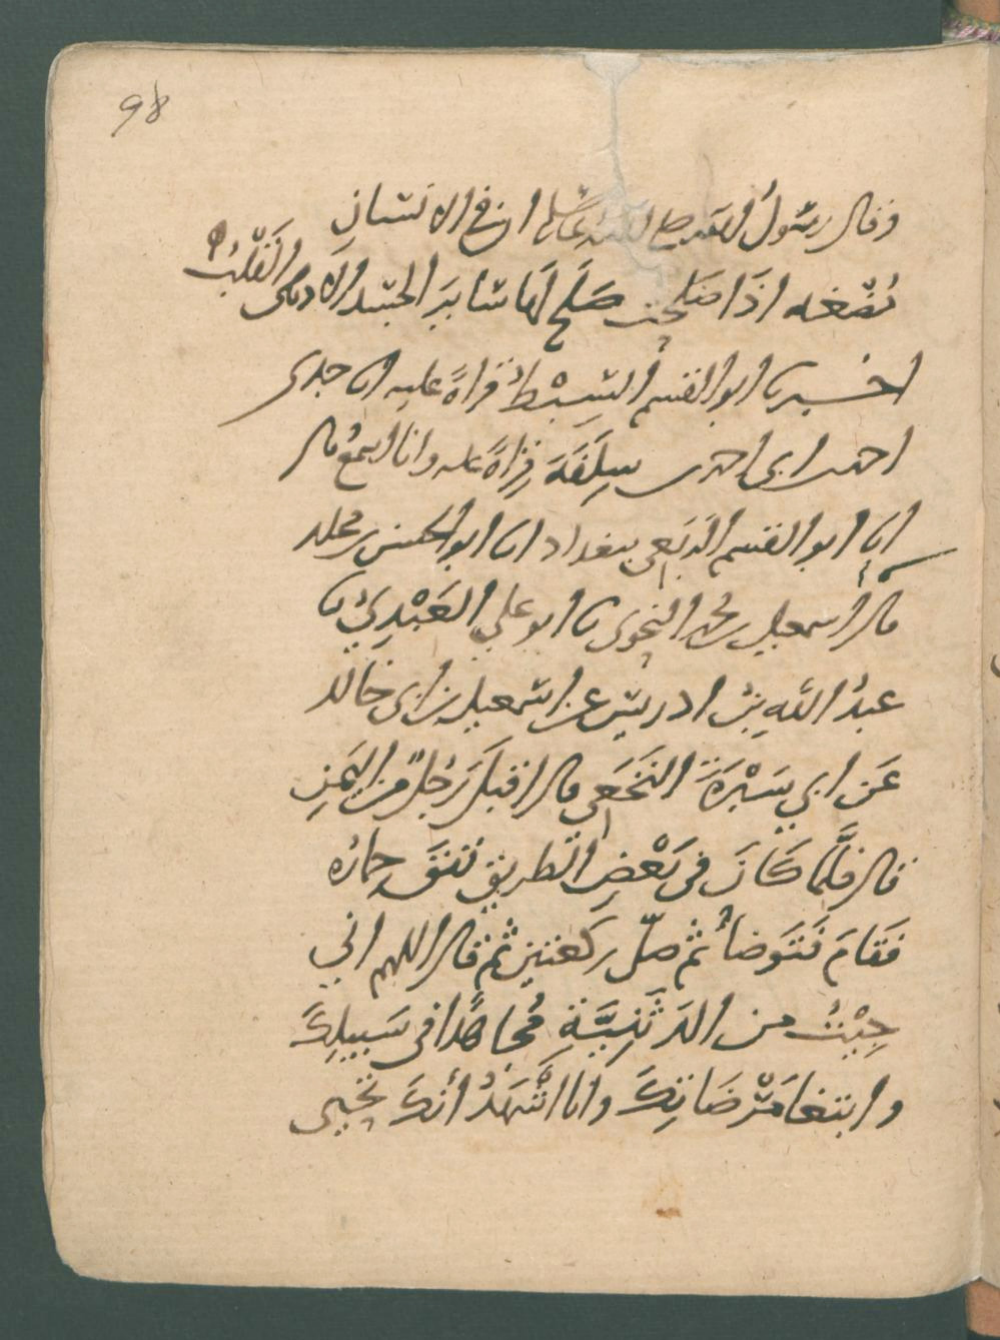 98
وقال رسول الله صلى الله عليه وسلم ان في الانسان
مُضْغه اذَا صَلحت صَلَح لَها سَايرُ الجسَد الا وهى القَلْبُ
اخــبرنا ابو القسم السِبْطُ قراةً عليه انا جدى
احمد ابى احمد سِلَفَهَ قِرَاةً عليه وانا اسمعُ قال
انا ابو القسم الرَبَعِي ببغداد انا ابو الحسن بن مخلد
قال اسمعيل بن محمد النحوى نا ابو علي العَبْدِيُ نا
عبدُ اللَّهِ بنُ ادريس عن اسمعيل بن ابى خالد
عَن ابي سَبْرَةَ النَخَعِي قال اقبَلَ رَجُلٌ من اليَمَنِ
قال فلَّما كَانَ فى بَعْضِ الطَريقِ نفقَ حمارُه
فَقامَ فَتَوَضأُ ثم صلّى ركعتين ثم قال اللهم انى
جِيْتُ من الدَثَنِيَّةِ مُجاهدًا فى سَبيلِكَ
وابتغا مَرْضَاتِكَ وانا اشْهَدُ أنكَ تحيى